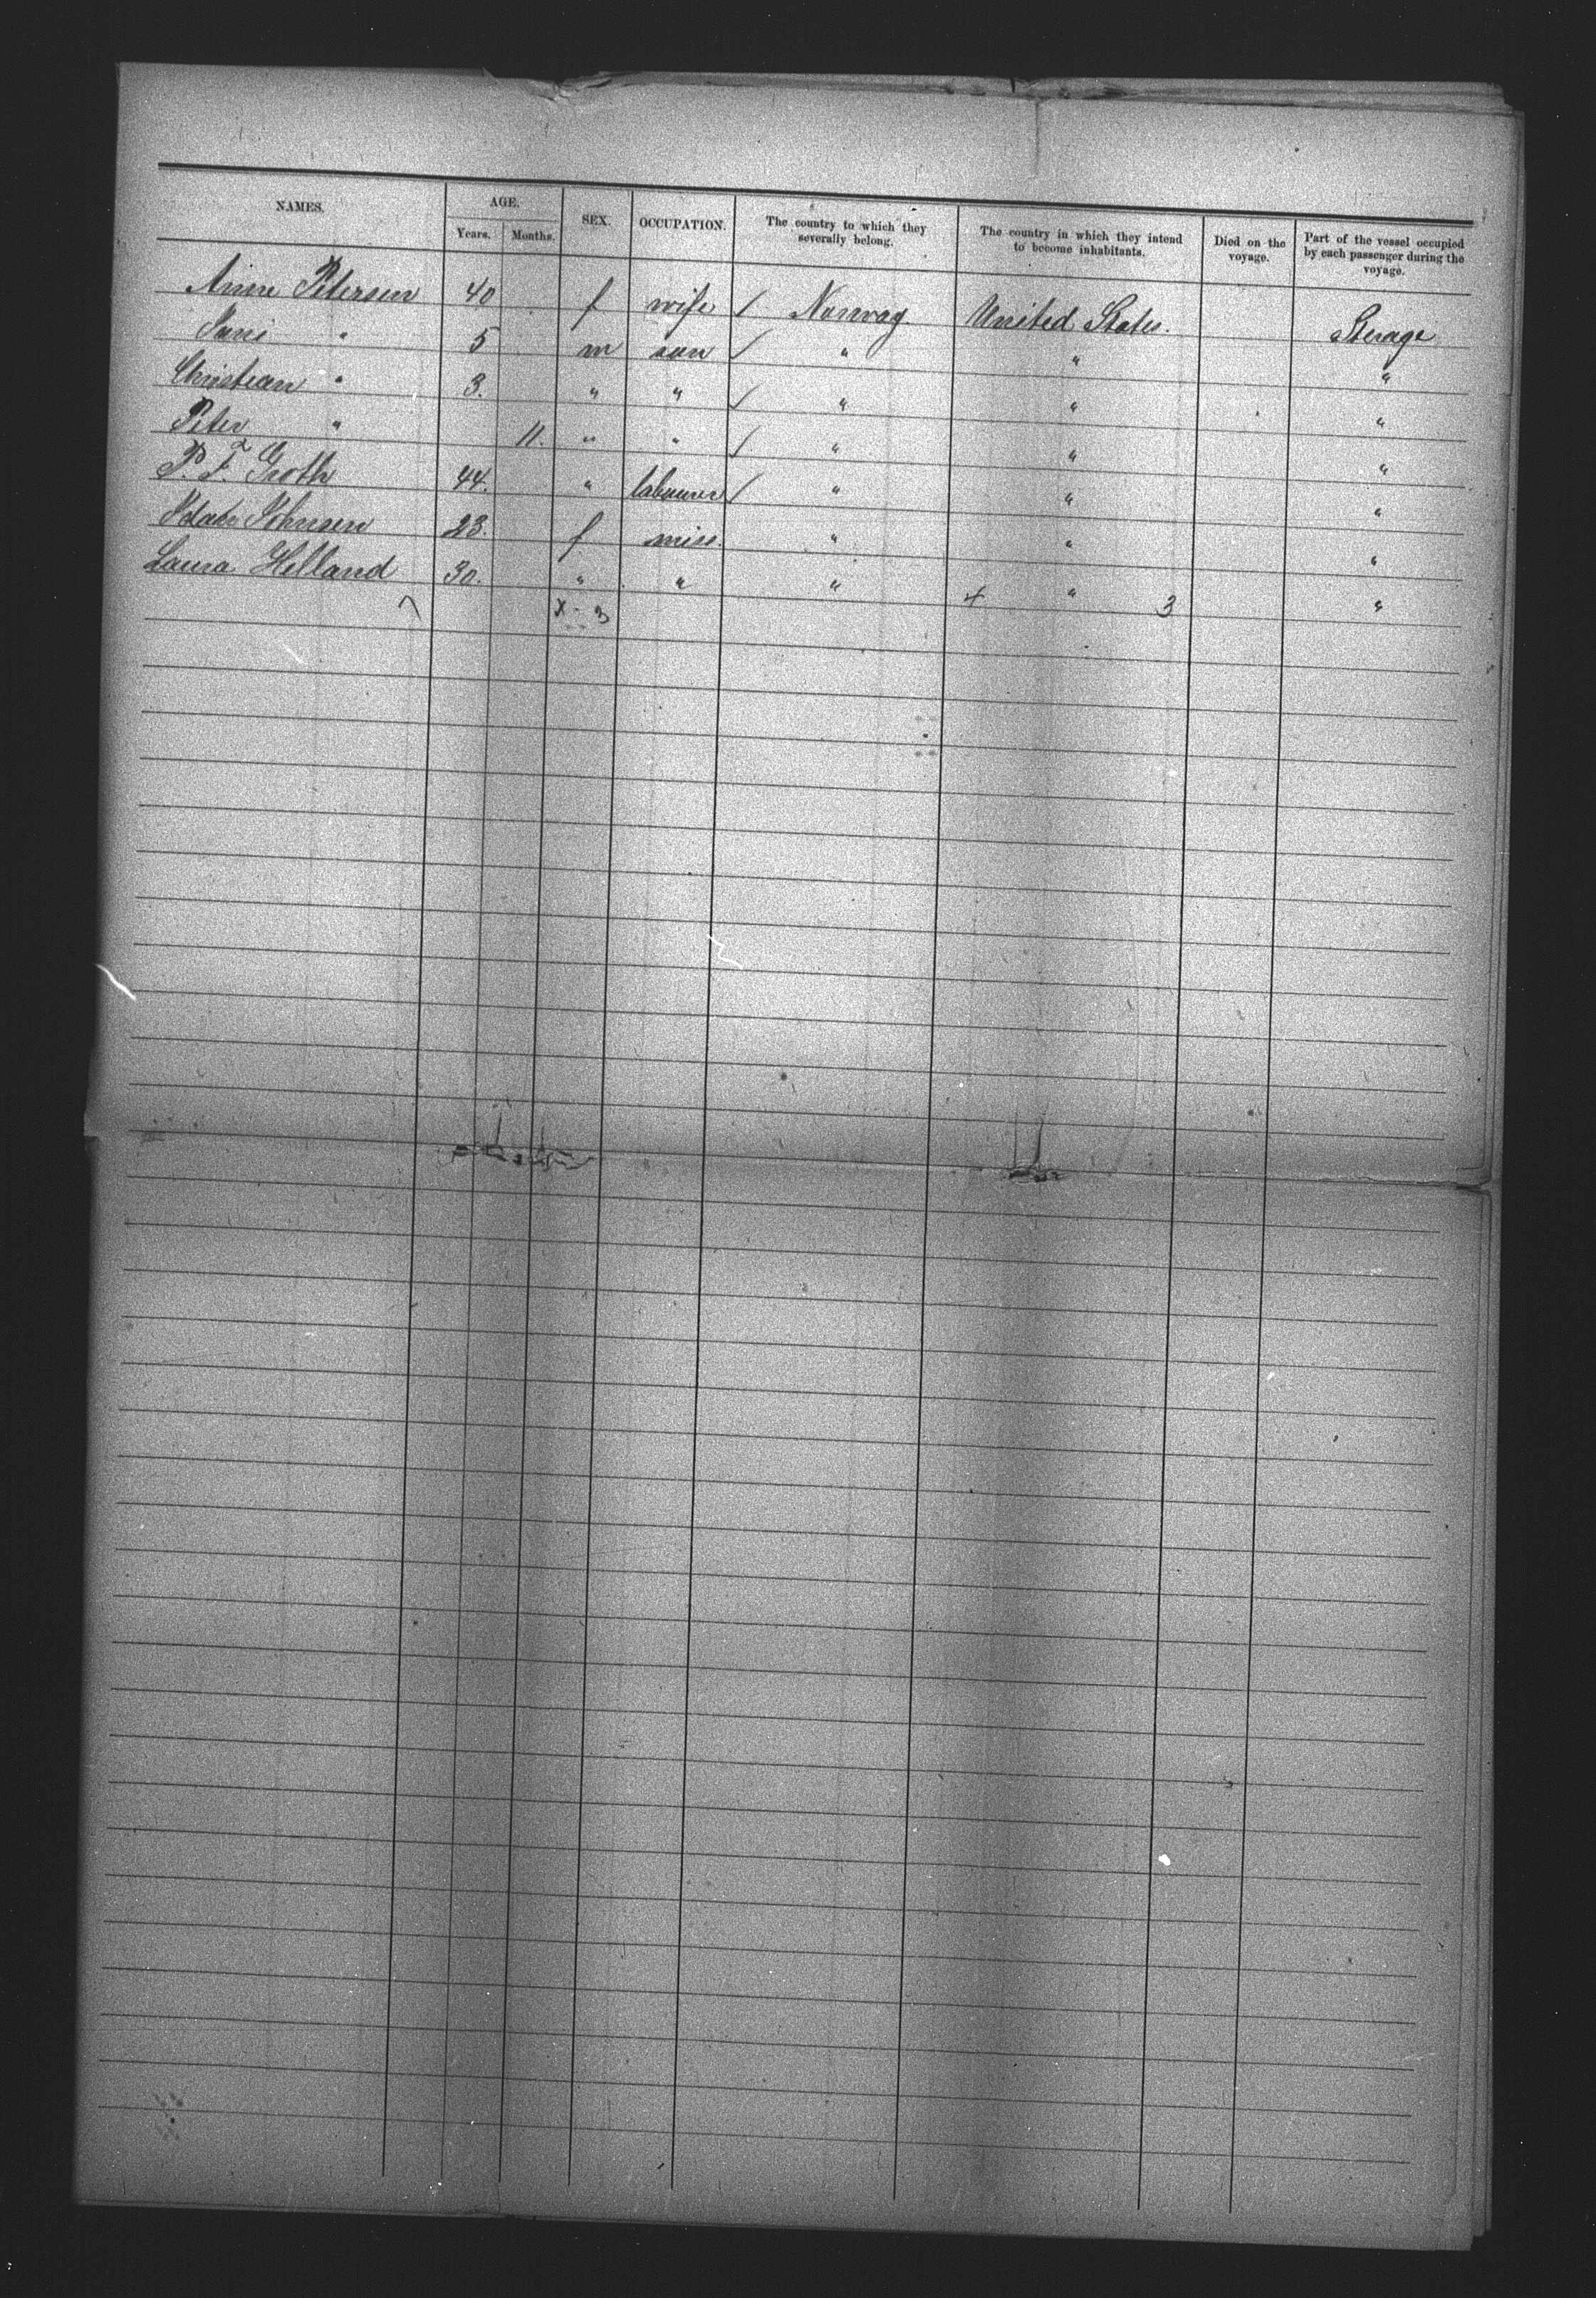 NAMES. AGE. SEX. OCCUPATION. The country to which they severally belong. The country in which they intend to become inhabitants. Died on the voyage. Part of the vessel occupied by each passenger during the voyage.
Years. Months.
Petersen 40 f wife / Norway United States. Sterage
" 5 m son / " " "
Christian " 3. " " / " " "
Peter " 11. " " / " " "
Groth 44. " labourer / " " "
Johnsen 23. f miss. " " "
Laura Helland 30. " " " " "
7 x - 3 4 3